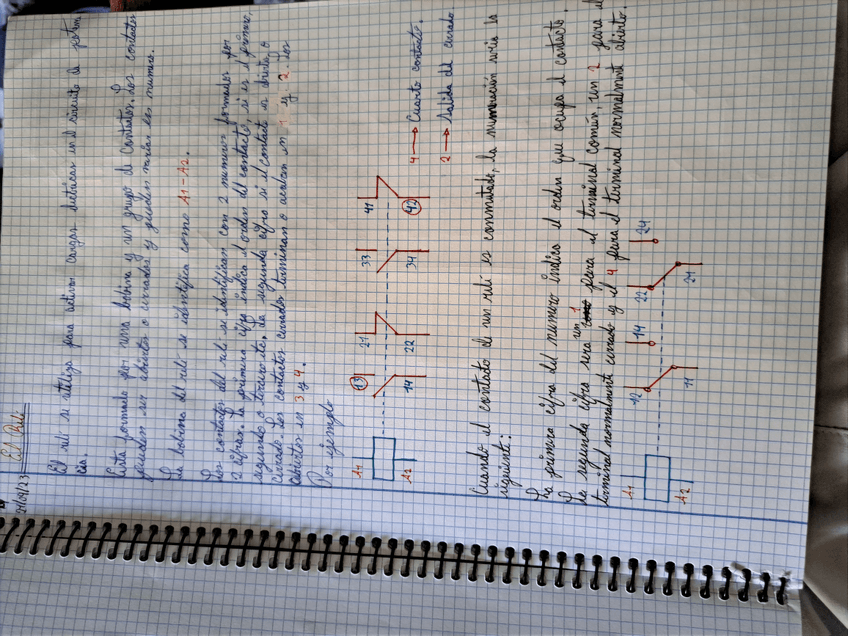 24/04/23
El Relé
El relé se utiliza para activar cargas eléctricas en el circuito de poten
cia.
Está formado por una bobina y un grupo de contactos. Los contactos
pueden ser abiertos o cerrados y pueden variar su numero.
La bobina del relé se identifica como A1-A2.
Los contactos del relé se identifican con 2 numeros formados por
2 cifras. La primera cifra indica el orden del contacto, si es el primero,
segundo o tercero etc. La segunda cifra si el contacto es abierto o
cerrado. Los contactos cerrados terminan o acaban en 1 y 2. Los
abiertos en 3 y 4.
Por ejemplo
A1 13 21 33 41
A2 14 22 34 42
4 → Cuarto contacto.
2 → Salida del cerrado
Cuando el contacto de un relé es conmutado, la numeración sería la
siguiente:
La primera cifra del numero indica el orden que ocupa el contacto.
La segunda cifra sera un 1 para el terminal común, un 2 para el
terminal normalmente cerrado y el 4 para el terminal normalment abierto.
A1 12 14 22 24
A2 11 21